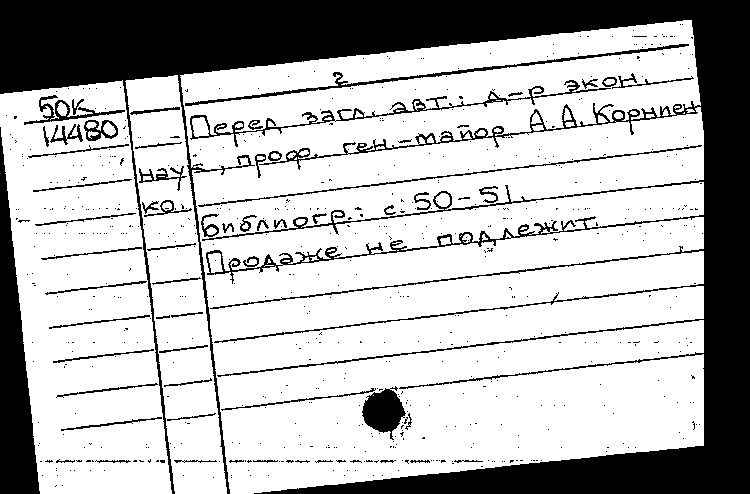 2
50К
14480
Перед загл. авт.: д-р экон.
наук, проф. ген.-майор А.А. Корниен
ко.
Библиогр.: с. 50-51.
Продаже не подлежит.